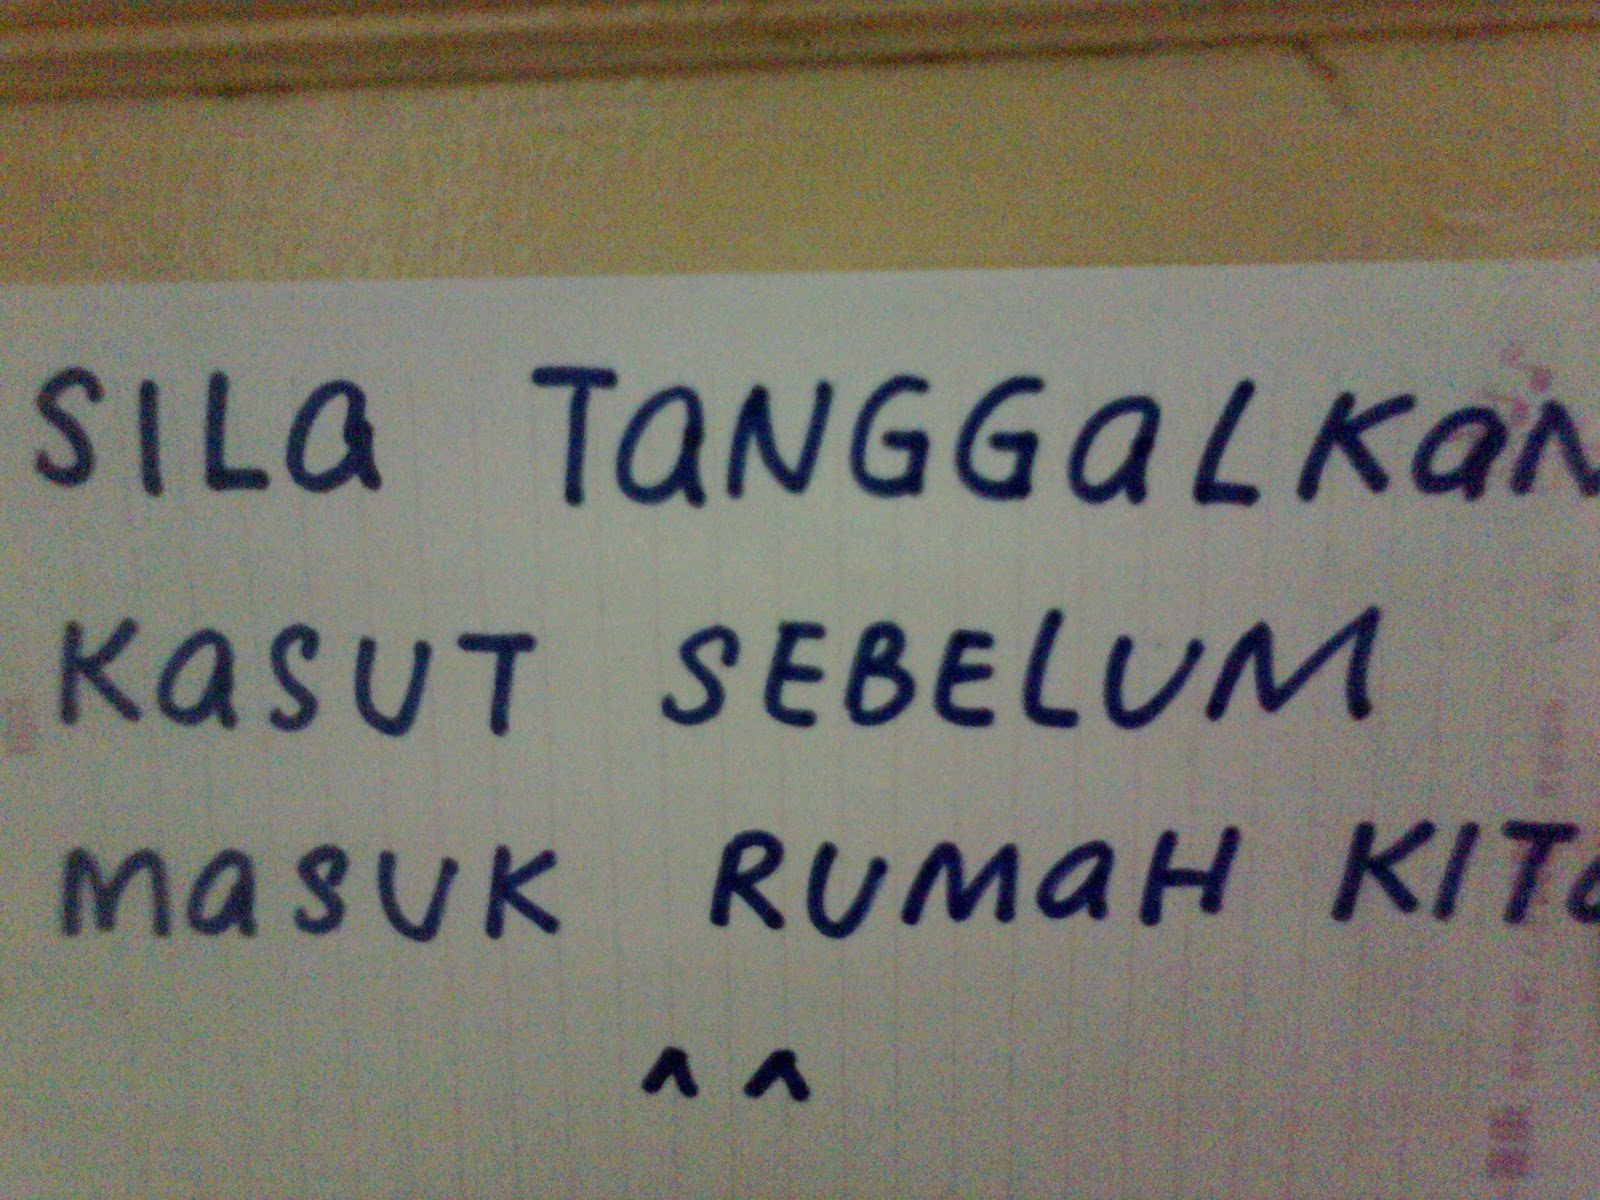 SILa TaNGGaLKaN
KaSUT SEBELUM
MaSUK RUMaH KITa
^ ^